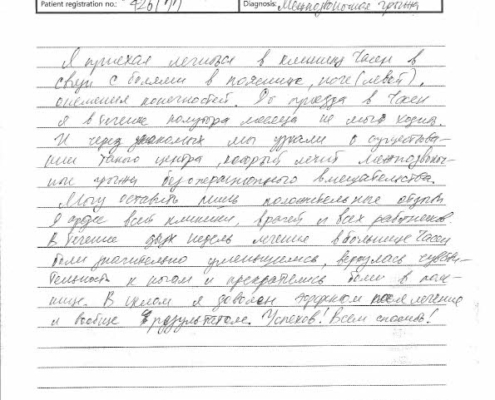 Patient registration no.: Diagnosis: Межпозвоночная грыжа
Я приехал лечиться в клинику Часен в
связи с болями в пояснице, ноге (левой),
онемения конечностей. До приезда в Часен
я в течение полутора месяца не мог ходить.
И через знакомых мы узнали о существова-
нии такого центра, который лечит межпозвоноч-
ные грыжи без операционного вмешательства.
Могу оставить лишь положительные отзывы
в адрес всей клиники, врачей и всех работников.
В течение двух недель лечение в больнице Часен
боли значительно уменьшились, вернулась чувстви-
тельность к ногам и прекратились боли в пояс-
нице. В целом я доволен подходом к лечению
и вообще результатом. Успехов! Всем спасибо!